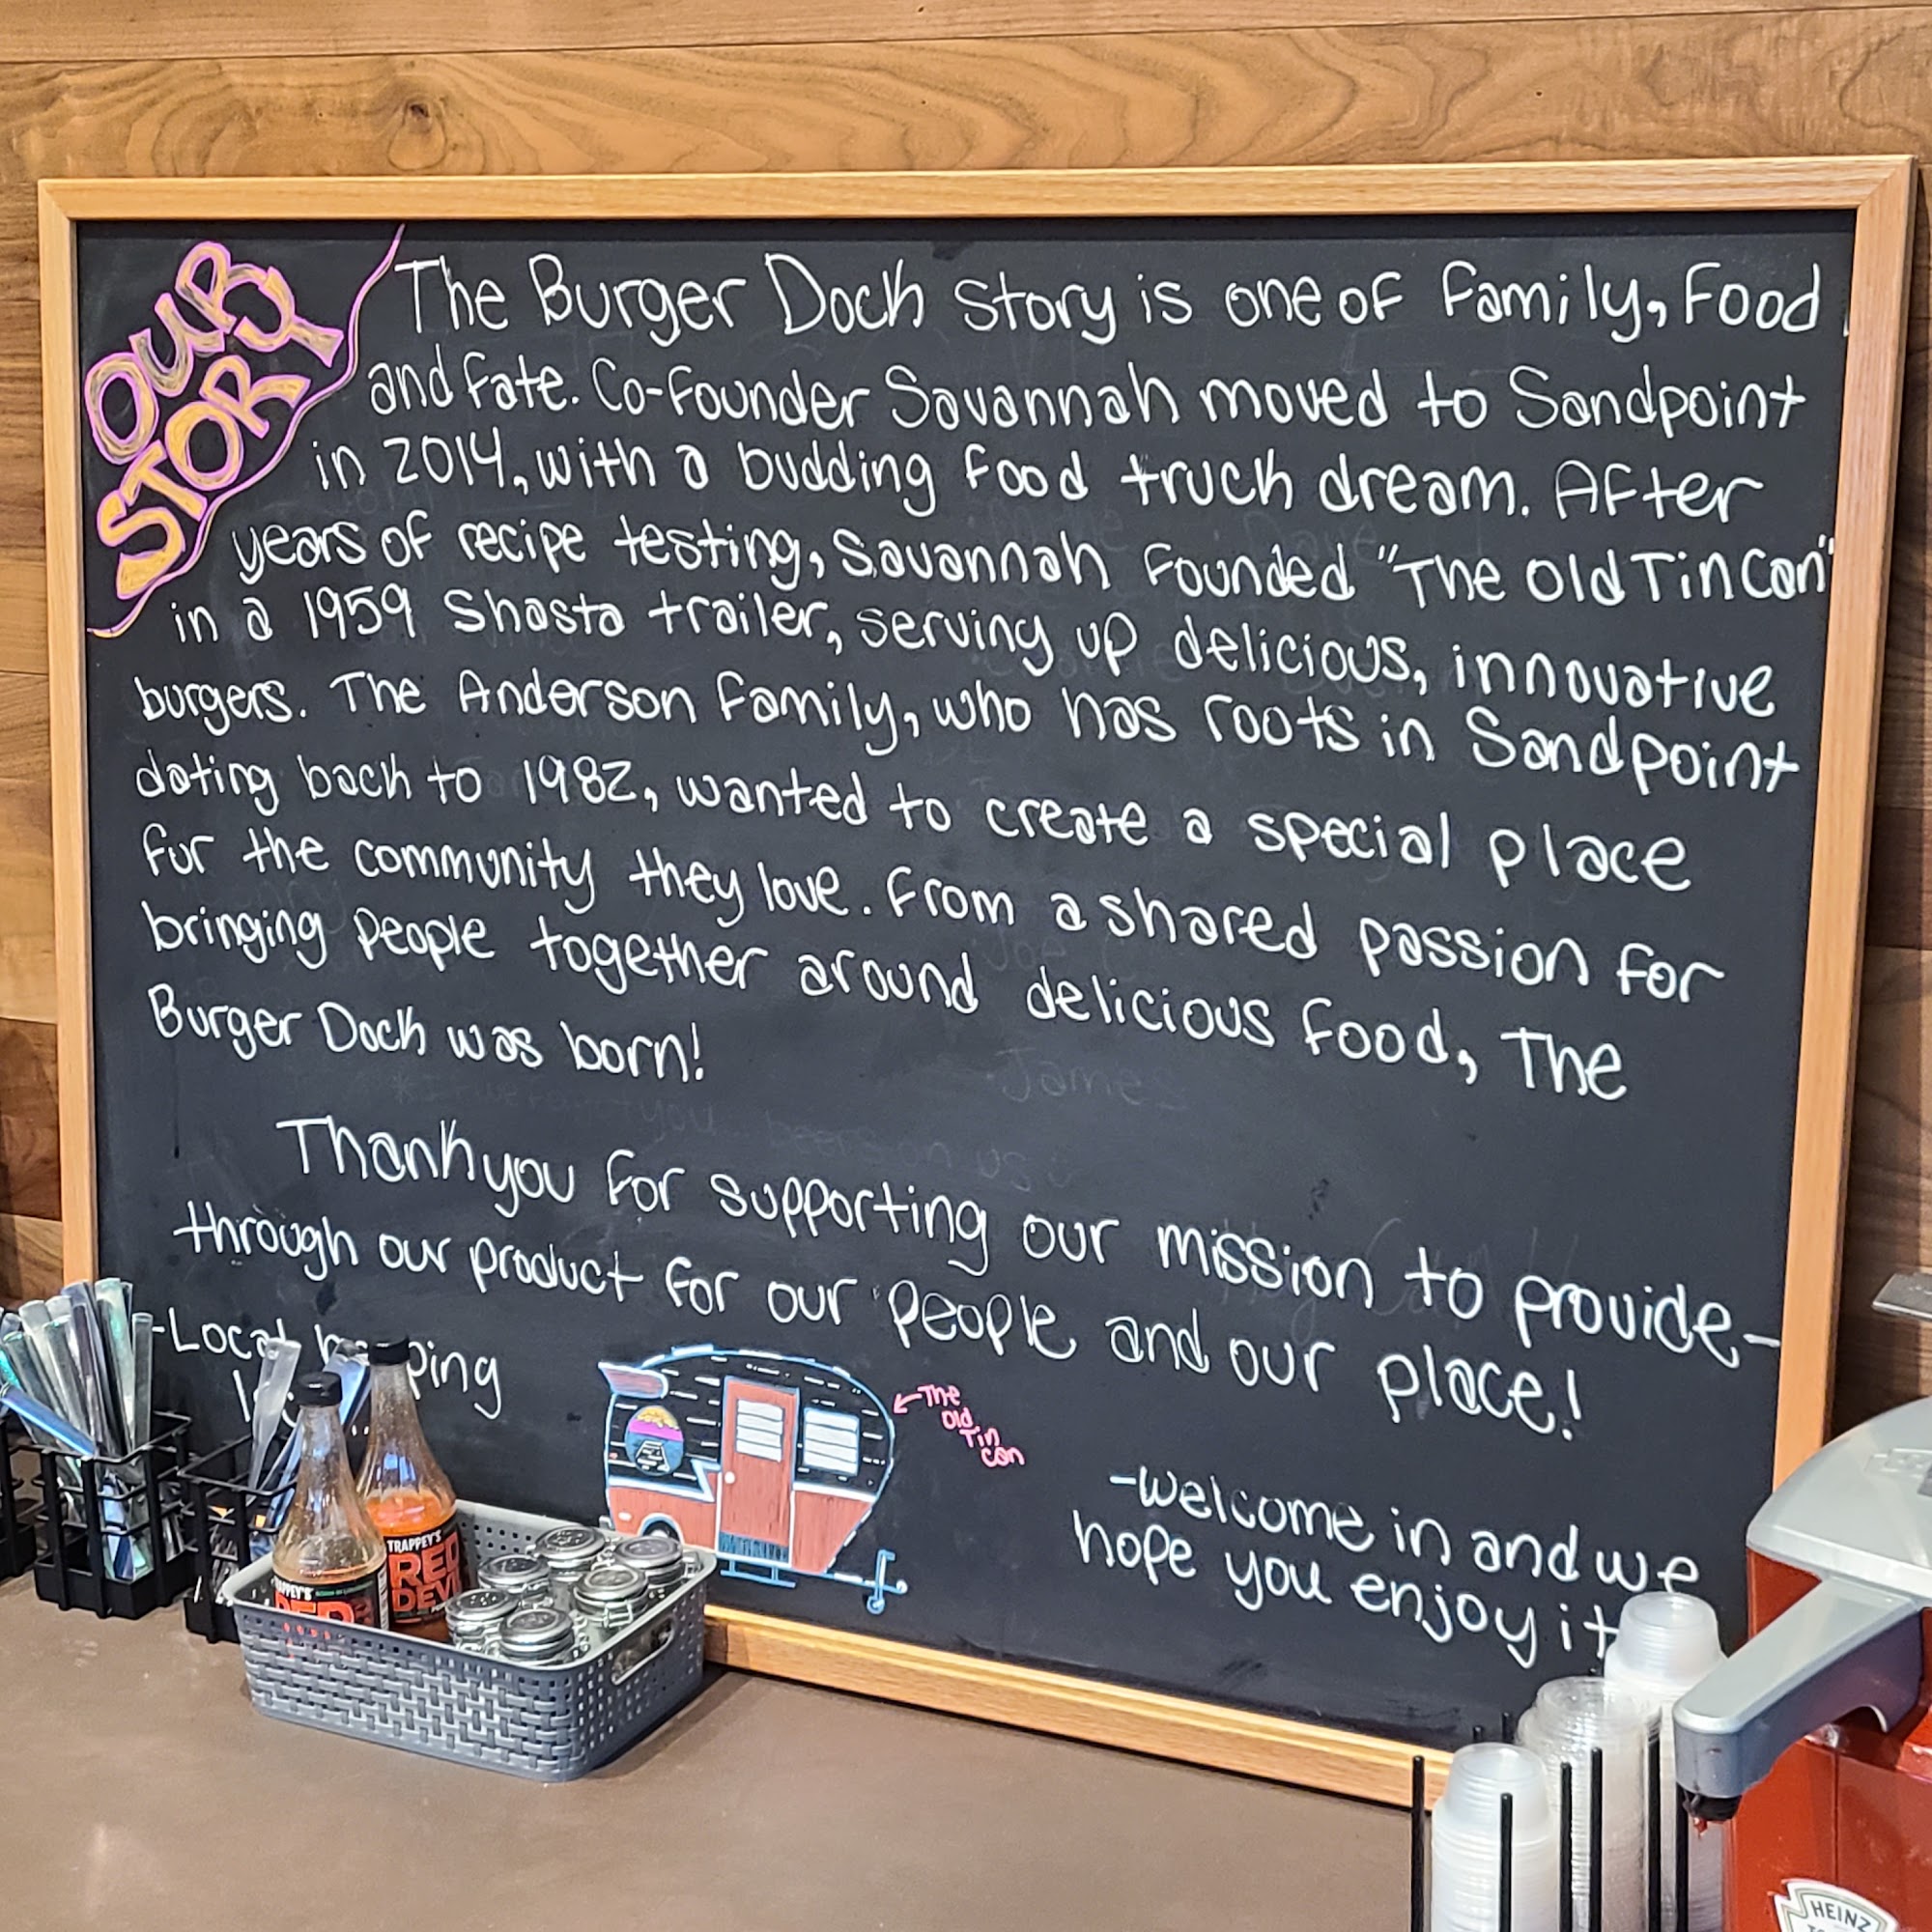 OUR
STORY
The Burger Dock story is one of family, food
and fate. Co-founder Savannah moved to Sandpoint
in 2014, with a budding food truck dream. After
years of recipe testing, Savannah founded "The Old Tin Can"
in a 1959 Shasta trailer, serving up delicious, innovative
burgers. The Anderson family, who has roots in Sandpoint
dating back to 1982, wanted to create a special place
for the community they love. From a shared passion for
bringing people together around delicious food, The
Burger Dock was born!
Thank you for supporting our mission to provide-
through our product for our people and our place!
-Local
← The
Old
Tin
Can
-Welcome in and we
hope you enjoy it
TRAPPEY'S
RED
DEVIL
HEINZ